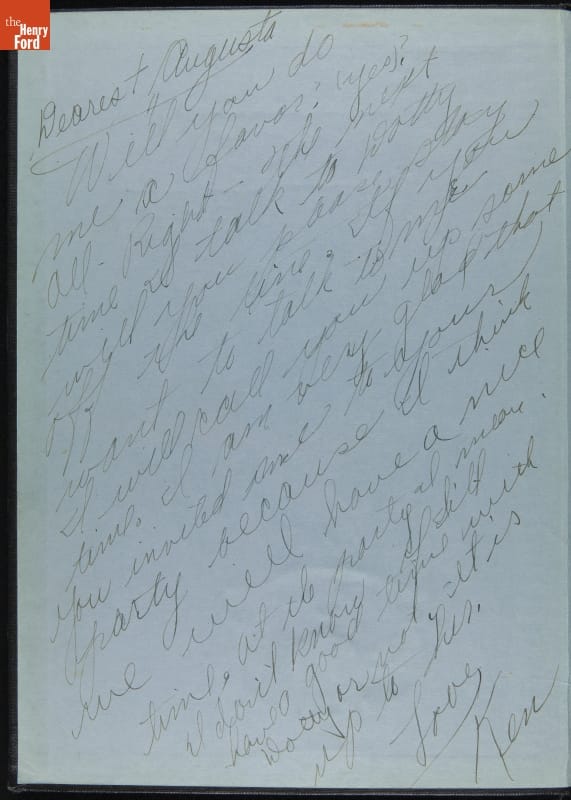 the
Henry
Ford
Dearest Augusta
Will you do
me a favor? (yes)?
All-Right - The next
time I talk to Dotty
will you please stay
off the line. If you
want to talk to me
I will call you up some
time. I am very glad that
you invited me to your
party because I think
we will have a nice
time, at the party I mean.
I don't know if I'll
have a good time with
Dotty or not. It is
up to her.
Love,
Ken